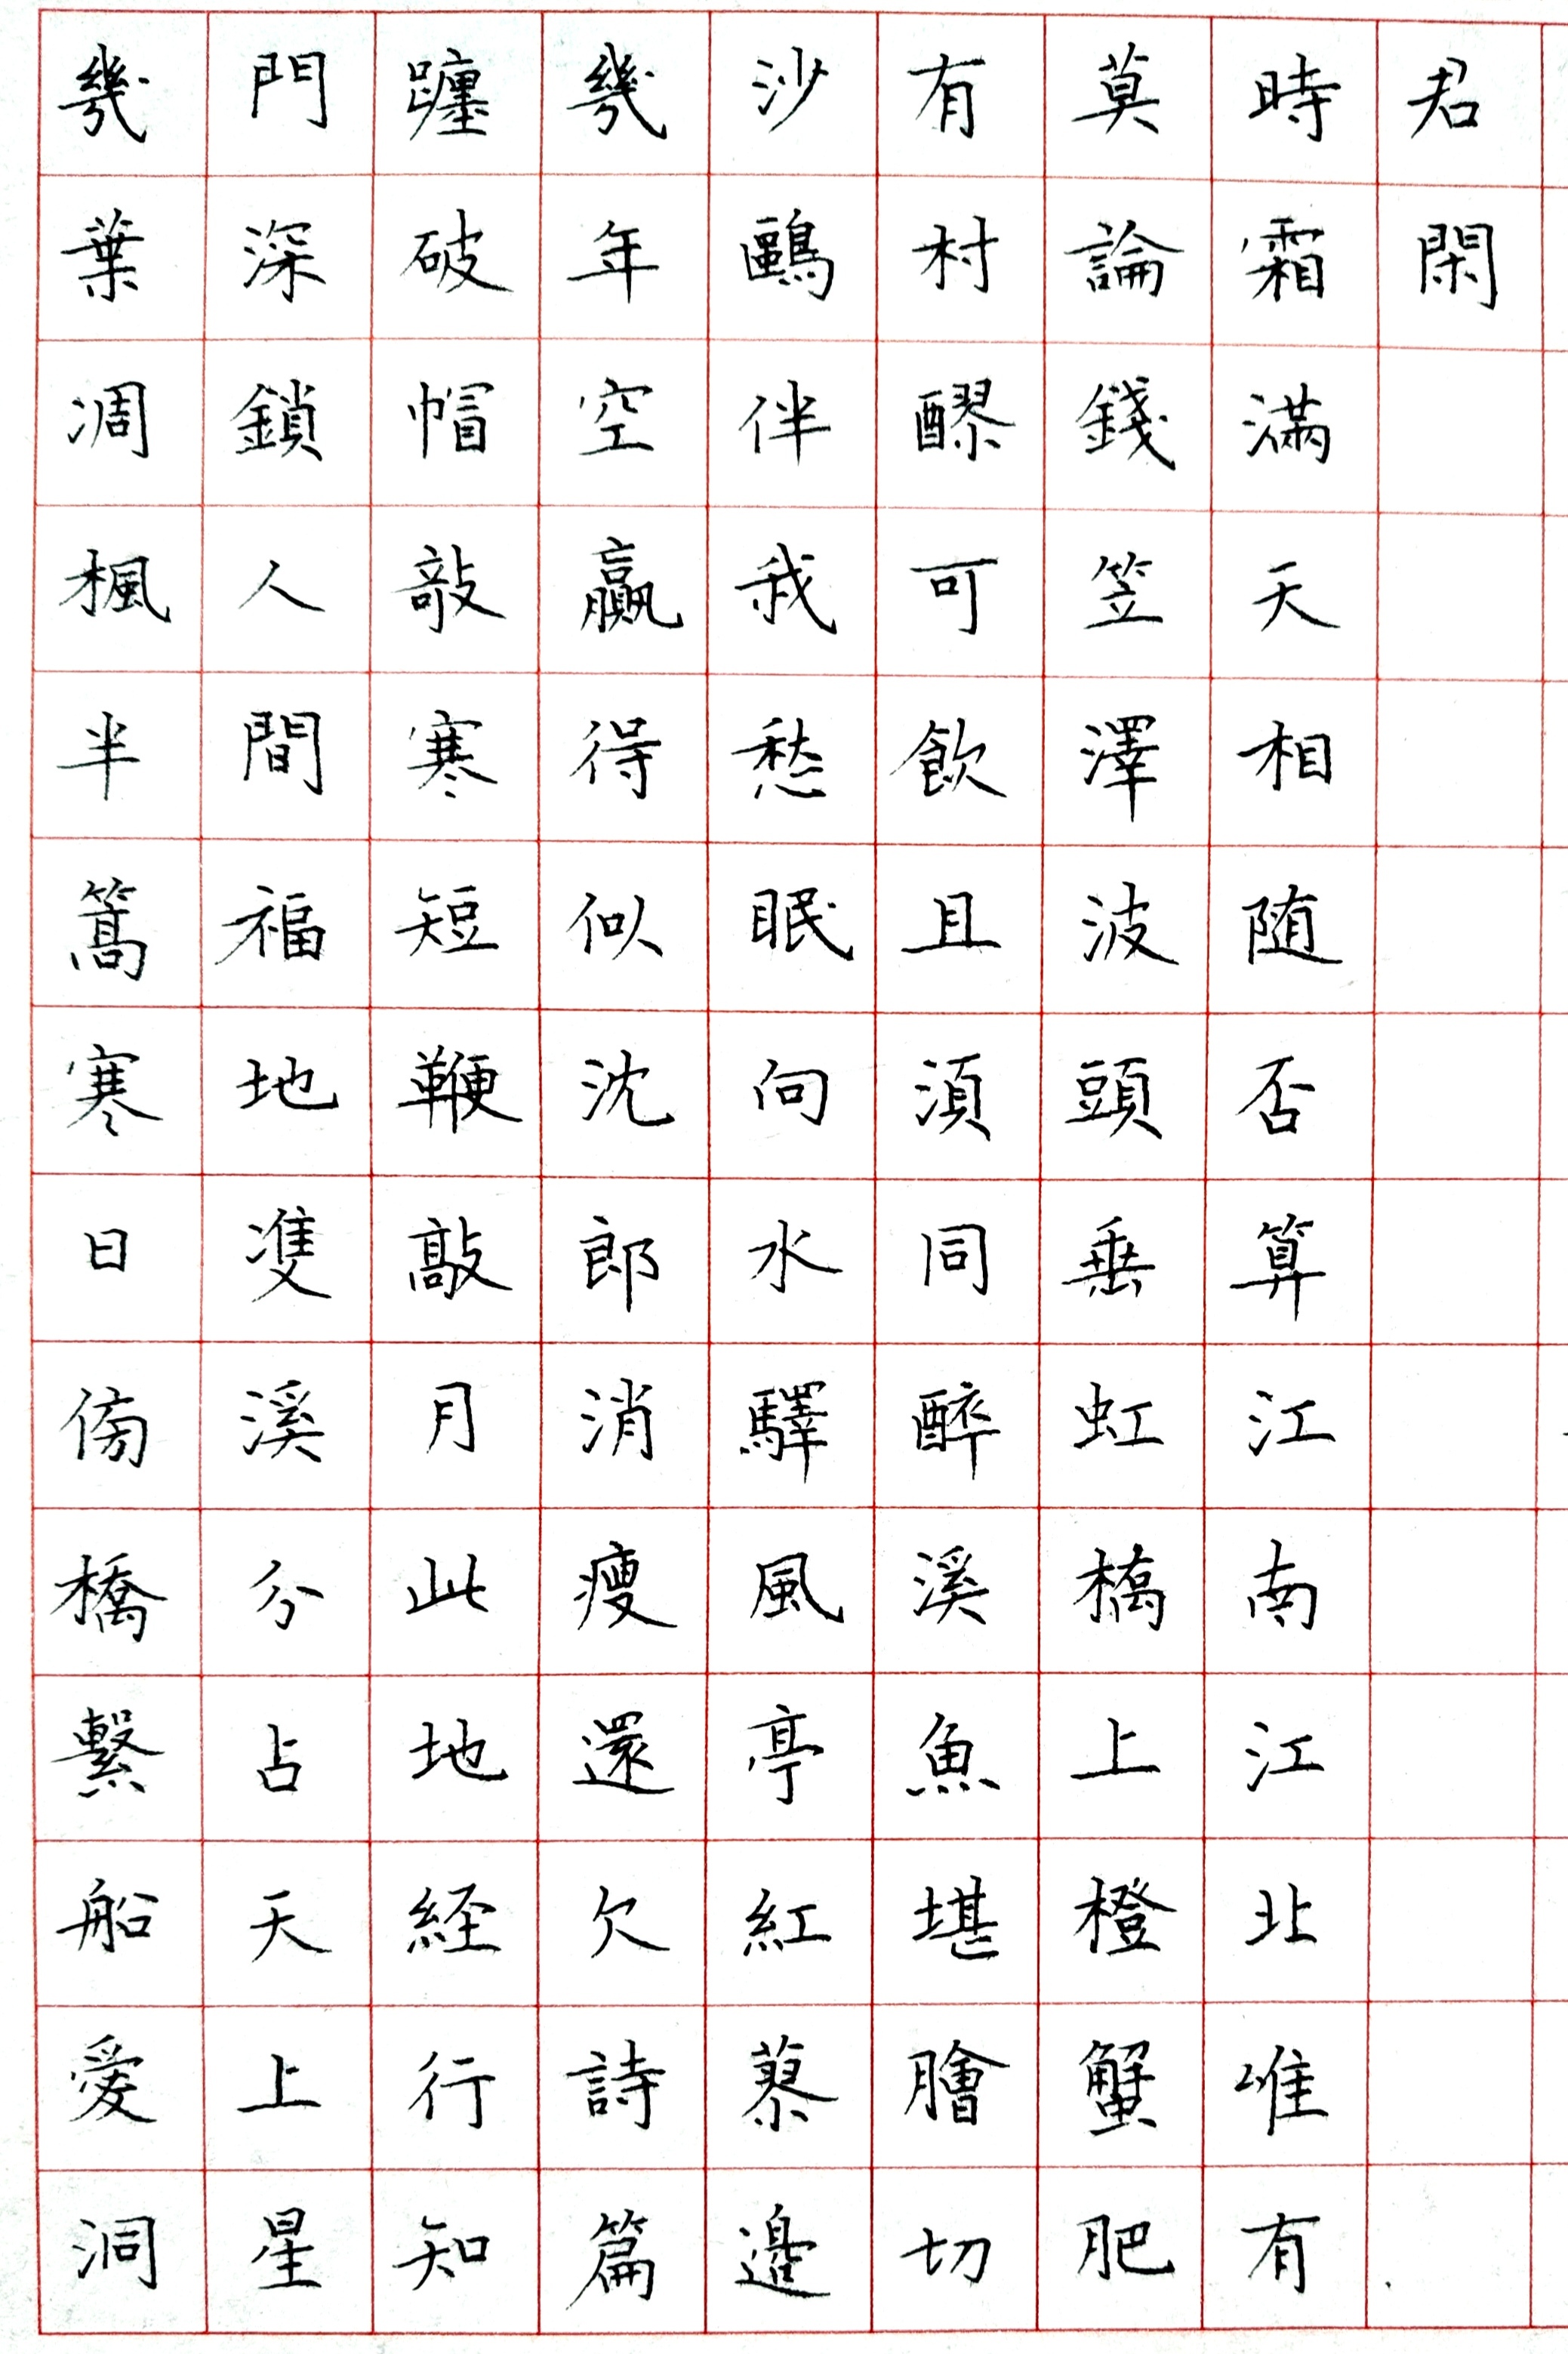 幾葉凋楓半篙寒日傍橋繫船愛洞
門深鎖人間福地雙溪分占天上星
躔破帽敲寒短鞭敲月此地経行知
幾年空贏得似沈郎消瘦還欠詩篇
沙鷗伴我愁眠向水驛風亭紅蓼邊
有村醪可飲且湏同醉溪魚堪膾切
莫論錢笠澤波頭垂虹橋上橙蟹肥
時霜滿天相随否算江南江北唯有
君閑